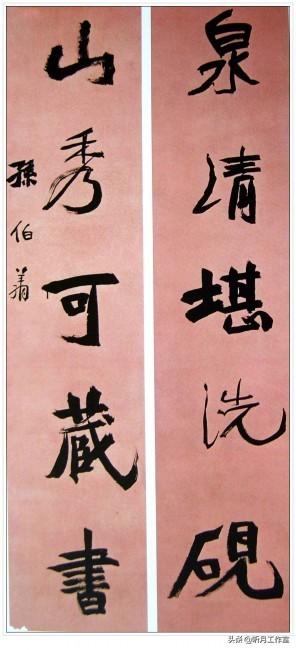 泉清堪洗硯
山秀可藏書
孫伯翦
头条@听月工作室